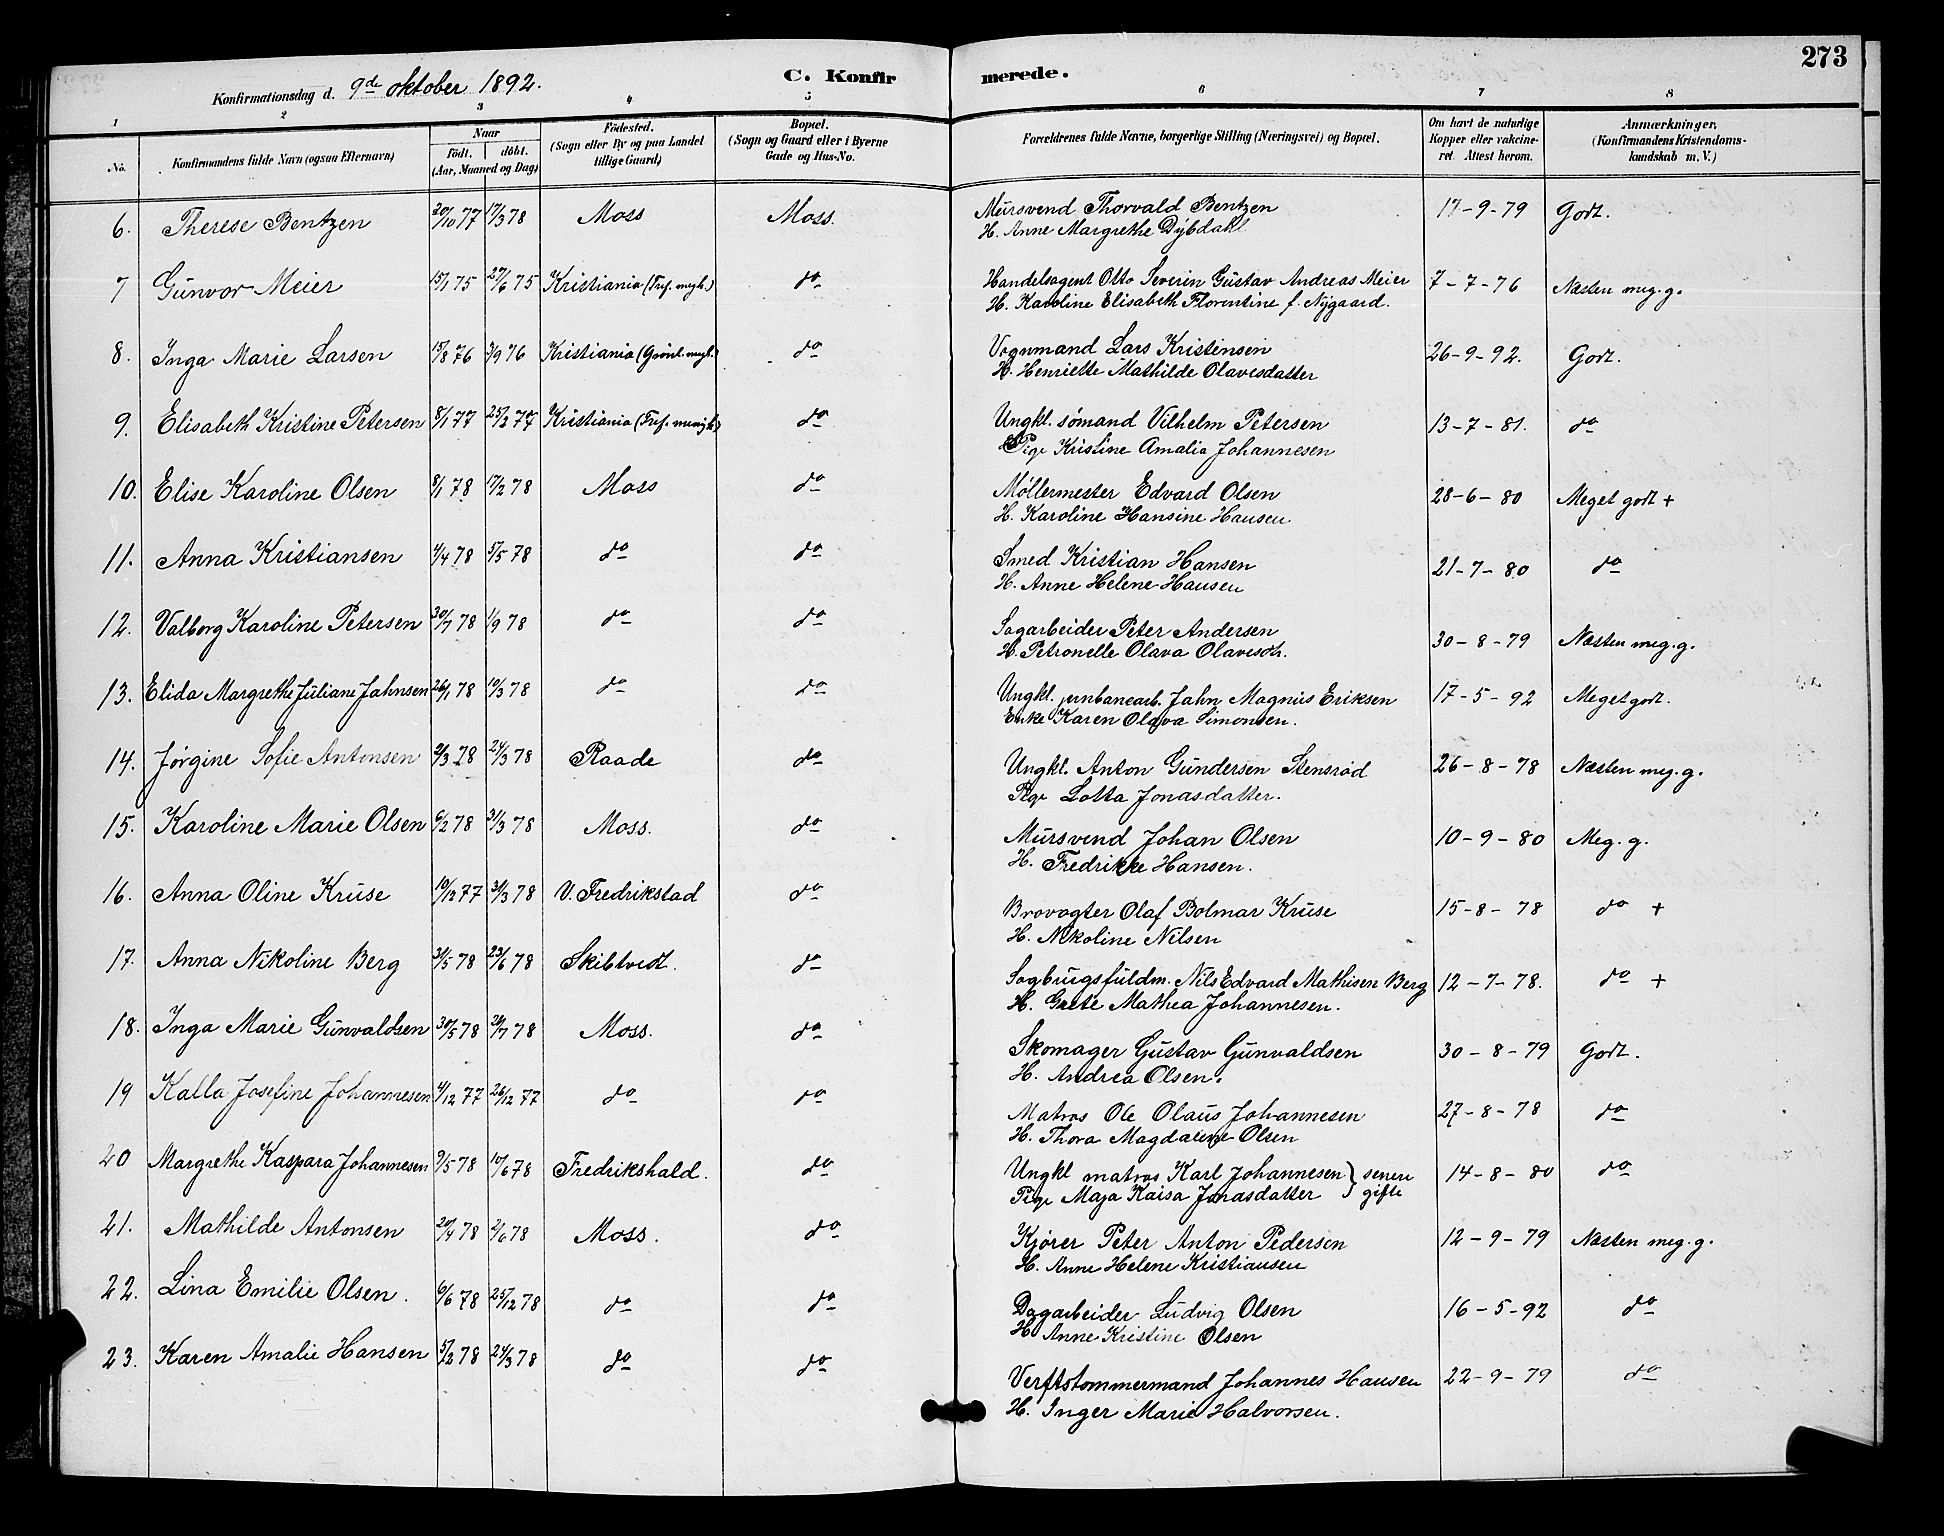 273
Konfirmationsdag d. 9de oktober 1892.
C. Konfirmerede.
1 2 3 4 5 6 7 8
No.
Konfirmandens fulde Navn (ogsaa Efternavn)
Naar
födt. döbt.
(Aar, Maaned og Dag)
Födested.
(Sogn eller By og paa Landet
tillige Gaard)
Bopæl.
(Sogn og Gaard eller i Byerne
Gade og Hus-No.
Forældrenes fulde Navne, borgerlige Stilling (Næringsvei) og Bopæl.
Om havt de naturlige
Kopper eller vakcine-
ret. Attest herom.
Anmærkninger.
(Konfirmandens Kristendoms-
kundskab m. V.)
6. Therese Bentzen 20/10 77 17/3 78 Moss Moss. Mursvend Thorvald Bentzen 17-9-79 Godt.
H. Anne Margrethe Dybdahl
7 Gunvor Meier 15/1 75 27/6 75 Kristiania (Tref. mgh.) do Handelsagent Otto Severin Gustav Andreas Meier 7-7-76 Næsten meg. g.
H. Karoline Elisabeth Florentine f. Nygaard.
8. Inga Marie Larsen 15/8 76 3/9 76 Kristiania (Grønl. mgh.) do Vognmand Lars Kristensen 26-9-92. Godt.
H. Henriette Mathilde Olavesdatter
9. Elisabeth Kristine Petersen 8/1 77 25/2 77 Kristiania do Ungkl. sømand Vilhelm Petersen 13-7-81. do
Pige Kristine Amalia Johannesen
10. Elise Karoline Olsen 8/1 78 17/2 78 Moss do Møllermester Edvard Olsen 28-6-80 Meget godt +
H. Karoline Hansine Hansen
11. Anna Kristiansen 4/4 78 5/5 78 do do Smed Kristian Hansen 21-7-80 do
H. Anne Helene Hansen
12. Valborg Karoline Petersen 30/7 78 1/9 78 do do Sagarbeider Peter Andersen 30-8-79 Næsten meg. g.
H. Petronelle Olava Olavesdt.
13. Elida Margrethe Juliane Jahnsen 26/1 78 10/3 78 do do Ungkl. jernbanearb. Jahn Magnus Eriksen 17-5-92 Meget godt.
Enke Karen Olava Simonsen.
14. Jørgine Sofie Antonsen 2/3 78 24/3 78 Raade do Ungkl. Anton Gundersen Stensrød 26-8-78 Næsten meg. g.
Pige Lotta Jonasdatter.
15. Karoline Marie Olsen 6/2 78 31/3 78 Moss. do Mursvend Johan Olsen 10-9-80 Meg. g.
H. Fredrikke Hansen.
16. Anna Oline Kruse 10/12 77 31/3 78 V. Fredrikstad do Brovogter Olaf Bolmar Kruse 15-8-78 do +
H. Nikoline Nilsen
17. Anna Nikoline Berg 31/5 78 23/6 78 Skibtvedt. do Sagbrugsfuldm. Nils Edvard Mathisen Berg 12-7-78. do +
H. Grete Mathea Johannesen.
18. Inga Marie Gunvaldsen 30/5 78 28/7 78 Moss. do Skomager Gustav Gunvaldsen 30-8-79 Godt.
H. Andrea Olsen.
19 Kalla Josefine Johannesen 4/12 77 26/12 77 do do Matros Ole Olaus Johannesen 27-8-78 do
H. Thora Magdalene Olsen
20 Margrethe Kaspara Johannesen 9/5 78 10/6 78 Fredrikshald. do Ungkl matros Karl Johannesen } senere 14-8-80 do
Pige Maja Kaisa Jonasdatter } gifte
21. Mathilde Antonsen 20/4 78 2/6 78 Moss. do Kjører Peter Anton Pedersen 12-9-79 Næsten meg. g.
H. Anne Helene Kristiansen
22. Lina Emilie Olsen. 6/6 78 25/12 78 do do Dagarbeider Ludvig Olsen 16-5-92 do
H. Anne Kristine Olsen
23. Karen Amalie Hansen 5/2 78 24/3 78 do do Verftstømmermand Johannes Hansen 22-9-79 do
H. Inger Marie Halvorsen.